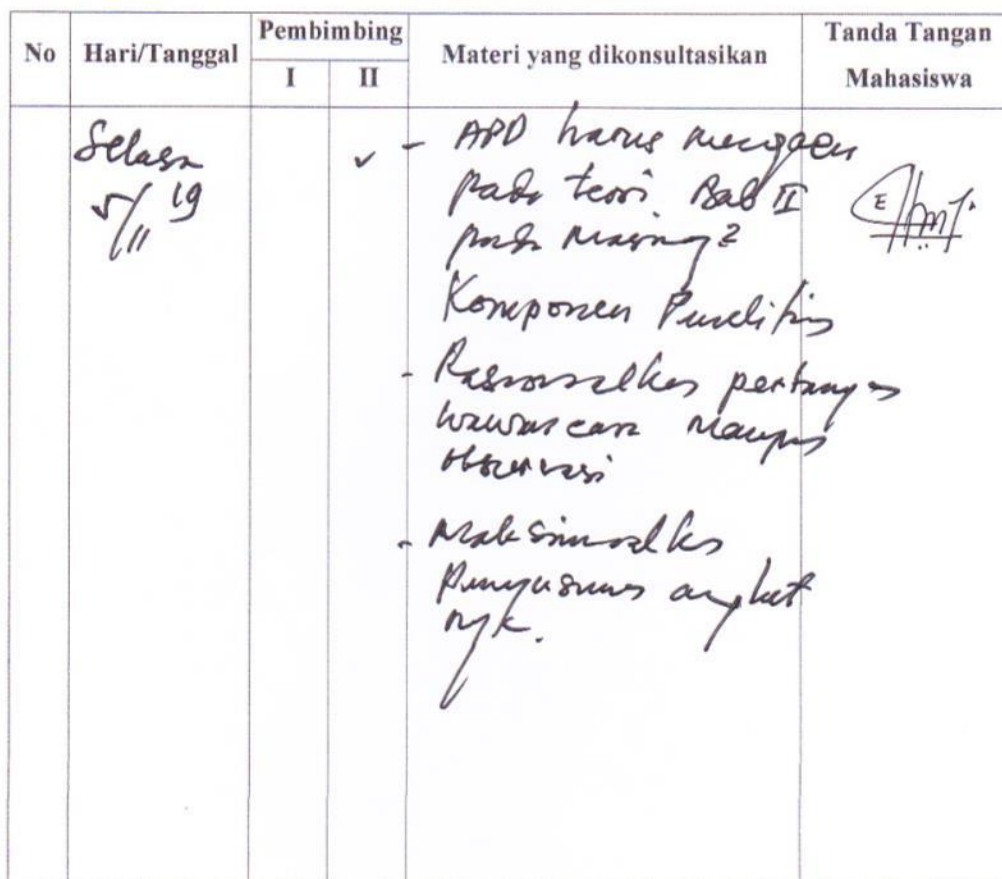 No Hari/Tanggal Pembimbing Materi yang dikonsultasikan Tanda Tangan
I II Mahasiswa
Selasa ✓ - APD harus mengacu
5/11 19 pada teori Bab II
pada masing²
Komponen Penelitian
- Rasionalkan pertanyaan
wawancara maupun
observasi
- Maksimalkan
Penyusunan angket